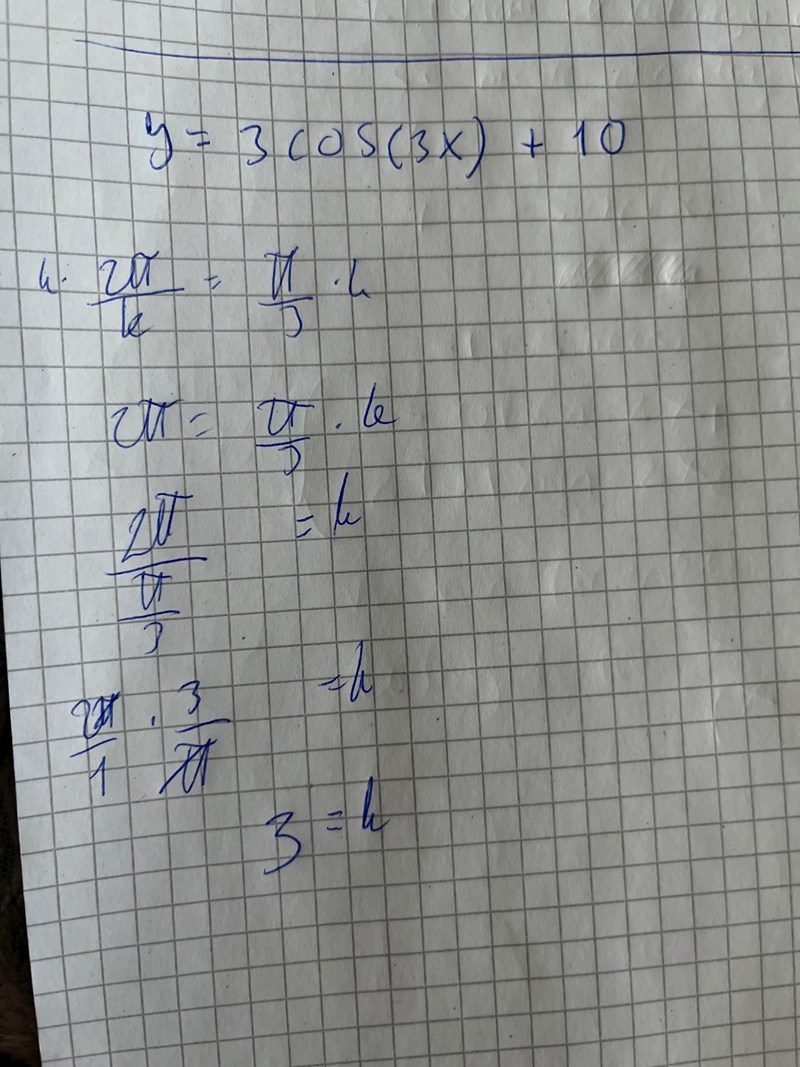 y = 3 cos(3x) + 10
k · 2π/k = π/3 · k
2π = π/3 · k
2π/(π/3) = k
2π/1 · 3/π = k
3 = k